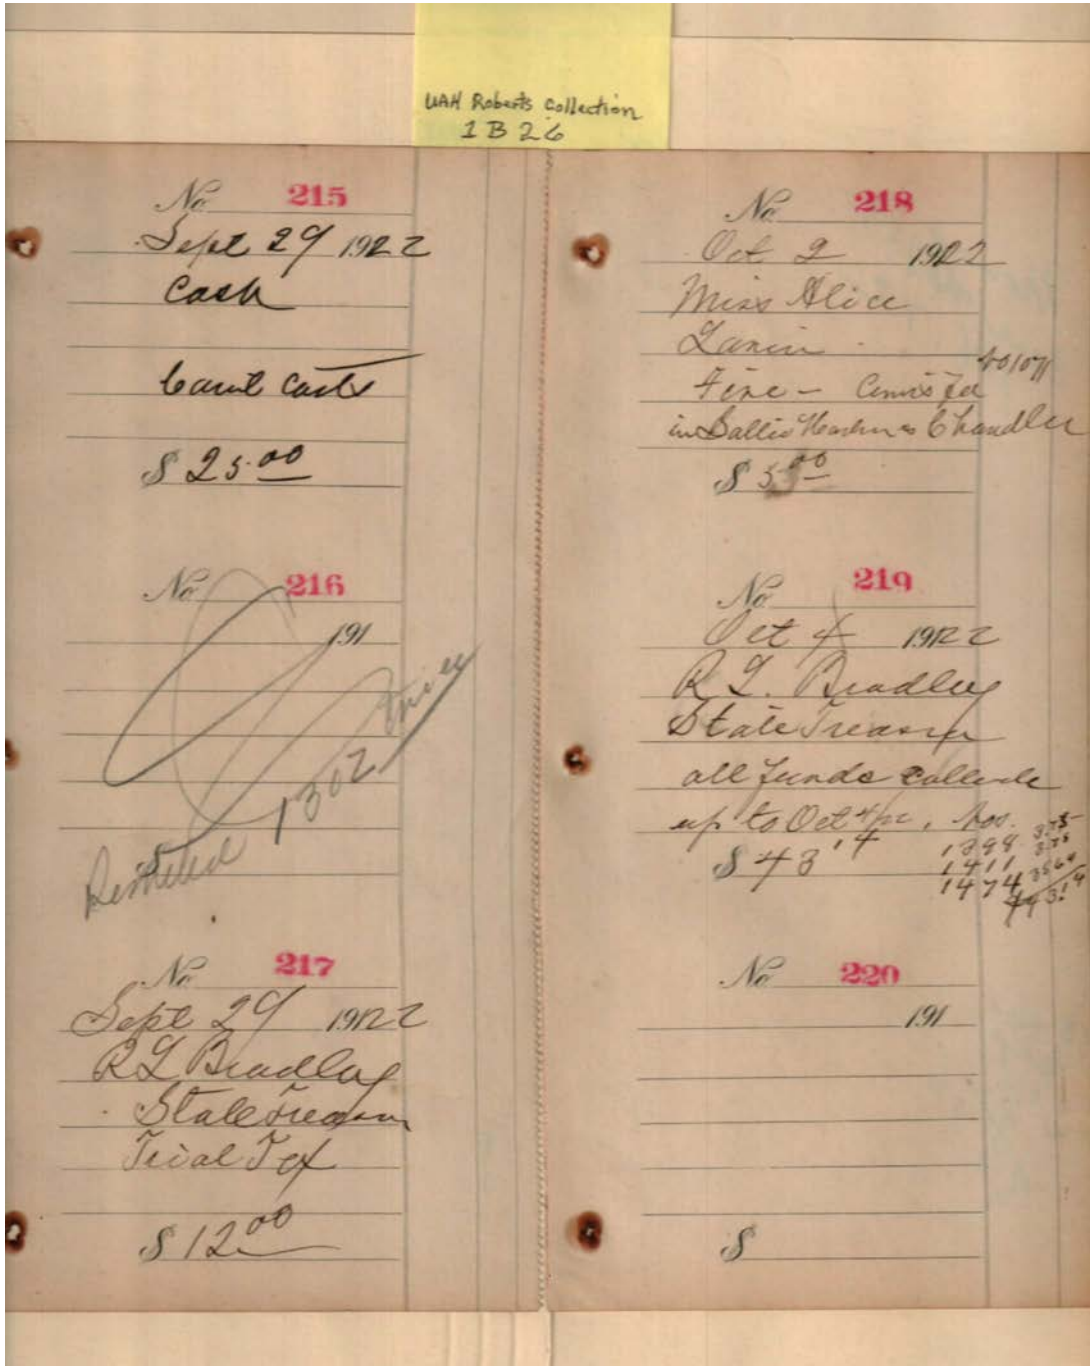 UAH Roberts Collection
1 B 26
No 215
Sept 29 1922
Cash
Court Costs
$ 25.00
No 216
191
1302
No 217
Sept 29 1922
R L Bradley
State Treasurer
Trial Tax
$ 12.00
No 218
Oct 2 1922
Miss Alice
Fine -
in Sallie vs Chandler
$ 5.00
No 219
Oct 4 1922
R L. Bradley
State Treasurer
all funds
up to Oct 4/22. Nos.
$ 43 14
1398 3.75
1411 3.75
1474 35 64
43.14
No 220
191
$